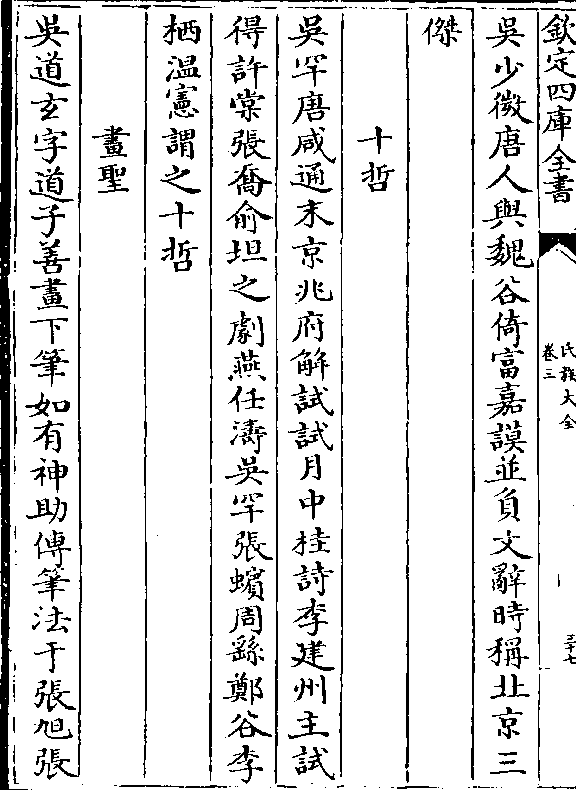 欽定四庫全書
氏族大全
卷三
三十七
吳少微唐人與魏谷倚富嘉謨並負文辭時稱北京三
傑
十哲
吳罕唐咸通末京兆府解試試月中桂詩李建州主試
得許棠張喬俞坦之劇燕任濤吳罕張蠙周繇鄭谷李
栖溫憲謂之十哲
畫聖
吳道玄字道子善畫下筆如有神助傳筆法于張旭張